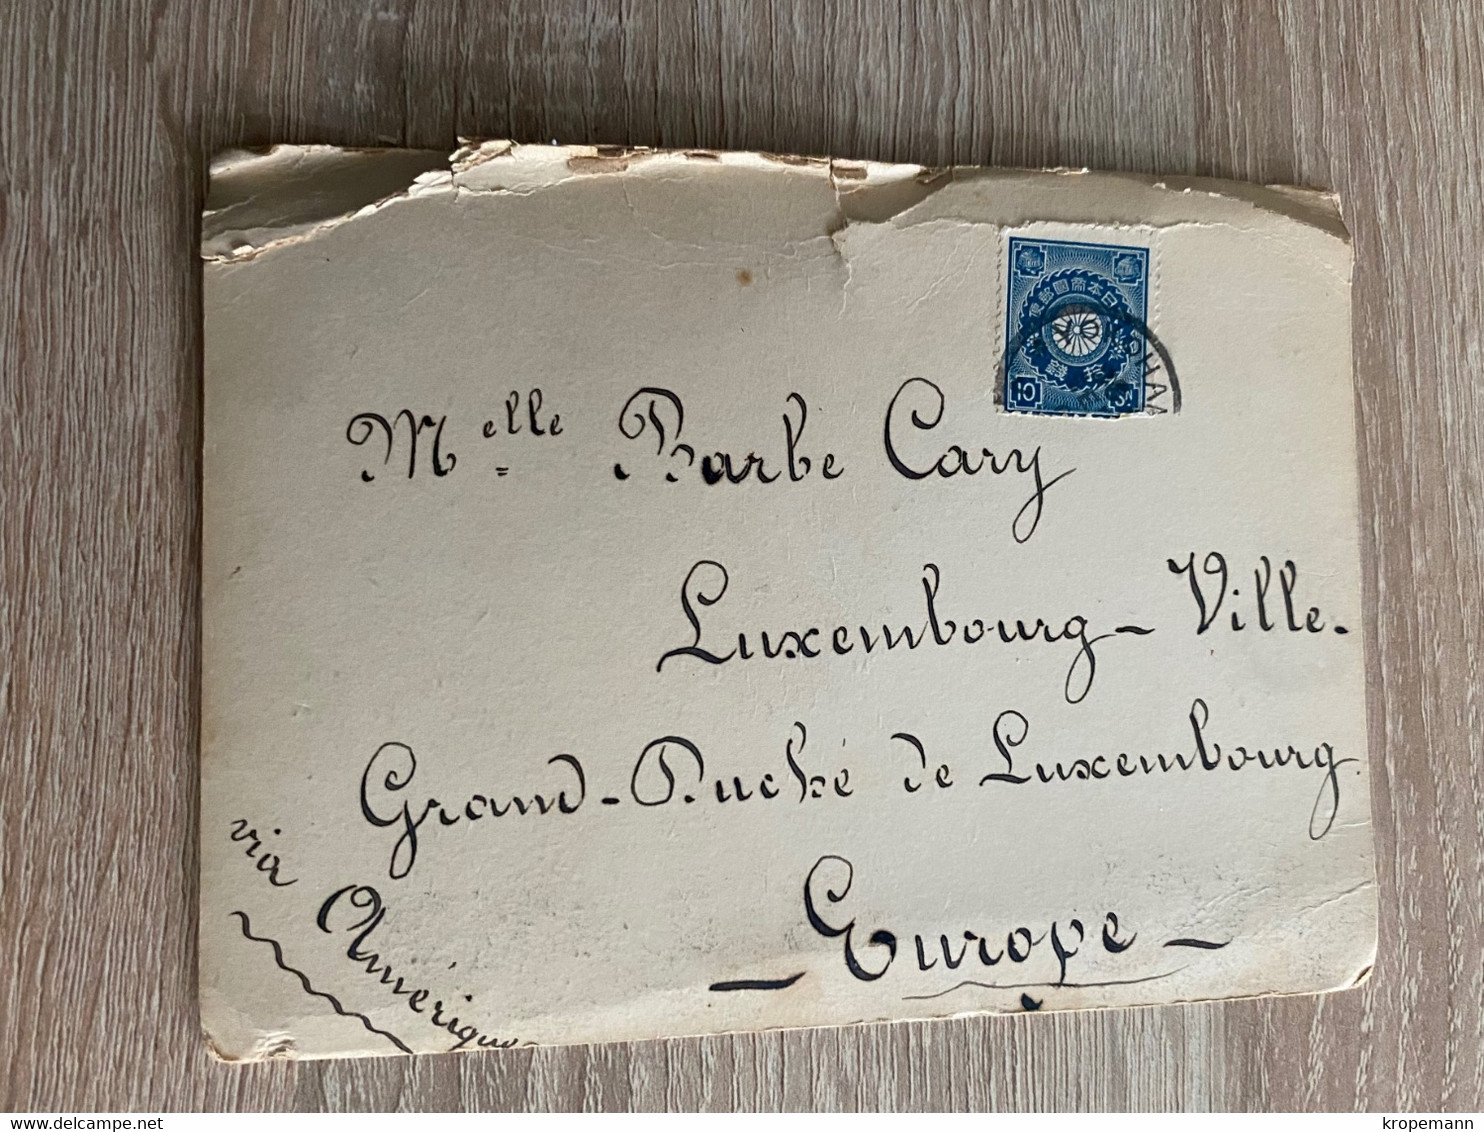 大日本帝國郵便
拾錢
10 Sn.
YOKOHAMA
Melle Barbe Cary
Luxembourg - Ville.
Grand-Duché de Luxembourg
- Europe -
via Amérique
delcampe.net
kropemann